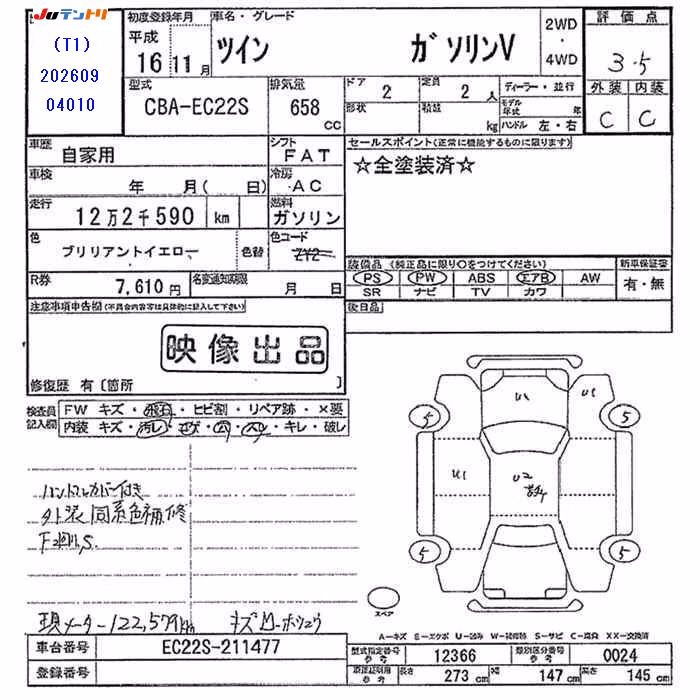 JUテントリ
(T1)
202609
04010
初度登録年月
平成
16 11 月
車名・グレード
ツイン ガソリンV
2WD
・
4WD
評価点
3.5
外装 内装
C C
型式
CBA-EC22S
排気量
658
cc
ドア
2
定員
2 人
ディーラー・並行
形状
積載
kg
モデル年式 年
ハンドル 左・右
車歴
自家用
シフト
FAT
車検
年 月( 日)
冷房
AC
走行
12万2千590 km
燃料
ガソリン
色
ブリリアントイエロー
色替
色コード
ZY2
R券
7,610円
名変通知期限
月 日
セールスポイント(正常に機能するものに限ります)
☆全塗装済☆
装備品(純正品に限り○をつけてください)
PS PW ABS エアB AW
SR ナビ TV カワ
新車保証書
有・無
後日品
注意事項申告欄(不具合内容等は具体的に記入して下さい)
映像出品
修復歴 有〔箇所 〕
検査員
記入欄
FW キズ・飛石・ヒビ割・リペア跡・×要
内装 キズ・汚レ・コゲ・穴・ヘレ・キレ・破レ
ハンドルカバー付き
外装同系色補修
現メーター122,579km
U1
U1
5
5
U1
U2
5
5
スペア
A-キズ E-エクボ U-凹み W-補修跡 S-サビ C-腐食 XX-交換済
車台番号
EC22S-211477
登録番号
型式指定番号
参考
12366
類別区分番号
参考
0024
車検証明用
参考
長さ
273 cm
幅
147 cm
高さ
145 cm